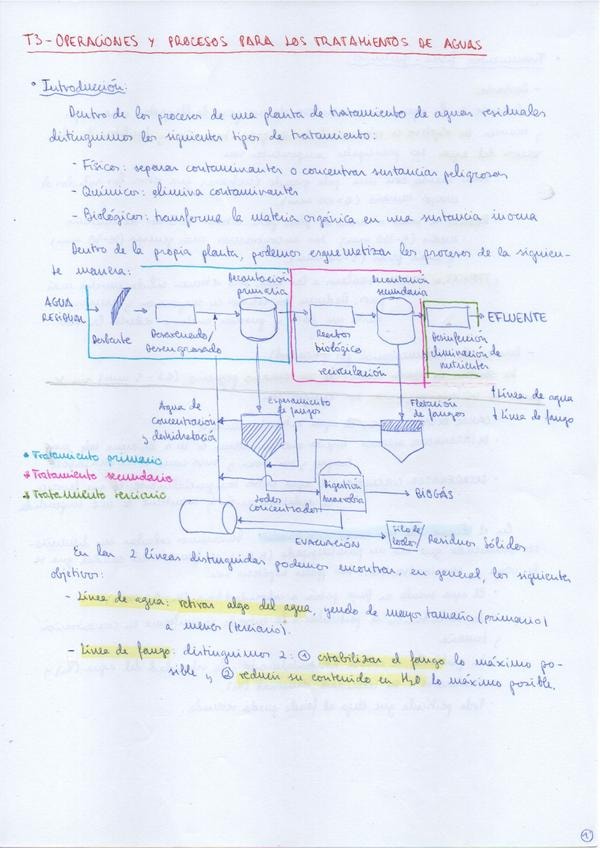 T3 - OPERACIONES Y PROCESOS PARA LOS TRATAMIENTOS DE AGUAS
• Introducción:
Dentro de los procesos de una planta de tratamiento de aguas residuales
distinguimos los siguientes tipos de tratamiento:
- Físicos: separar contaminantes o concentrar sustancias peligrosas
- Químicos: elimina contaminantes
- Biológicos: transforma la materia orgánica en una sustancia inocua
Dentro de la propia planta, podemos esquematizar los procesos de la siguien-
te manera:
Decantación
primaria
Decantación
secundaria
AGUA
RESIDUAL
EFLUENTE
Desbaste
Desarenado/
Desengrasado
Reactor
biológico
Desinfección
eliminación de
nutrientes
recirculación
↑ Línea de agua
↓ Línea de fango
Agua de
concentración
y deshidratación
Espesamiento
de fangos
Flotación
de fangos
* Tratamiento primario
* Tratamiento secundario
* Tratamiento terciario
Digestión
anaerobia
BIOGÁS
Lodos
concentrados
EVACUACIÓN
Silo de
lodos
Residuos Sólidos
En las 2 líneas distinguidas podemos encontrar, en general, los siguientes
objetivos:
- Línea de agua: retirar algo del agua, yendo de mayor tamaño (primario)
a menor (terciario).
- Línea de fango: distinguimos 2: ① estabilizar el fango lo máximo po-
sible y ② reducir su contenido en H2O lo máximo posible.
1